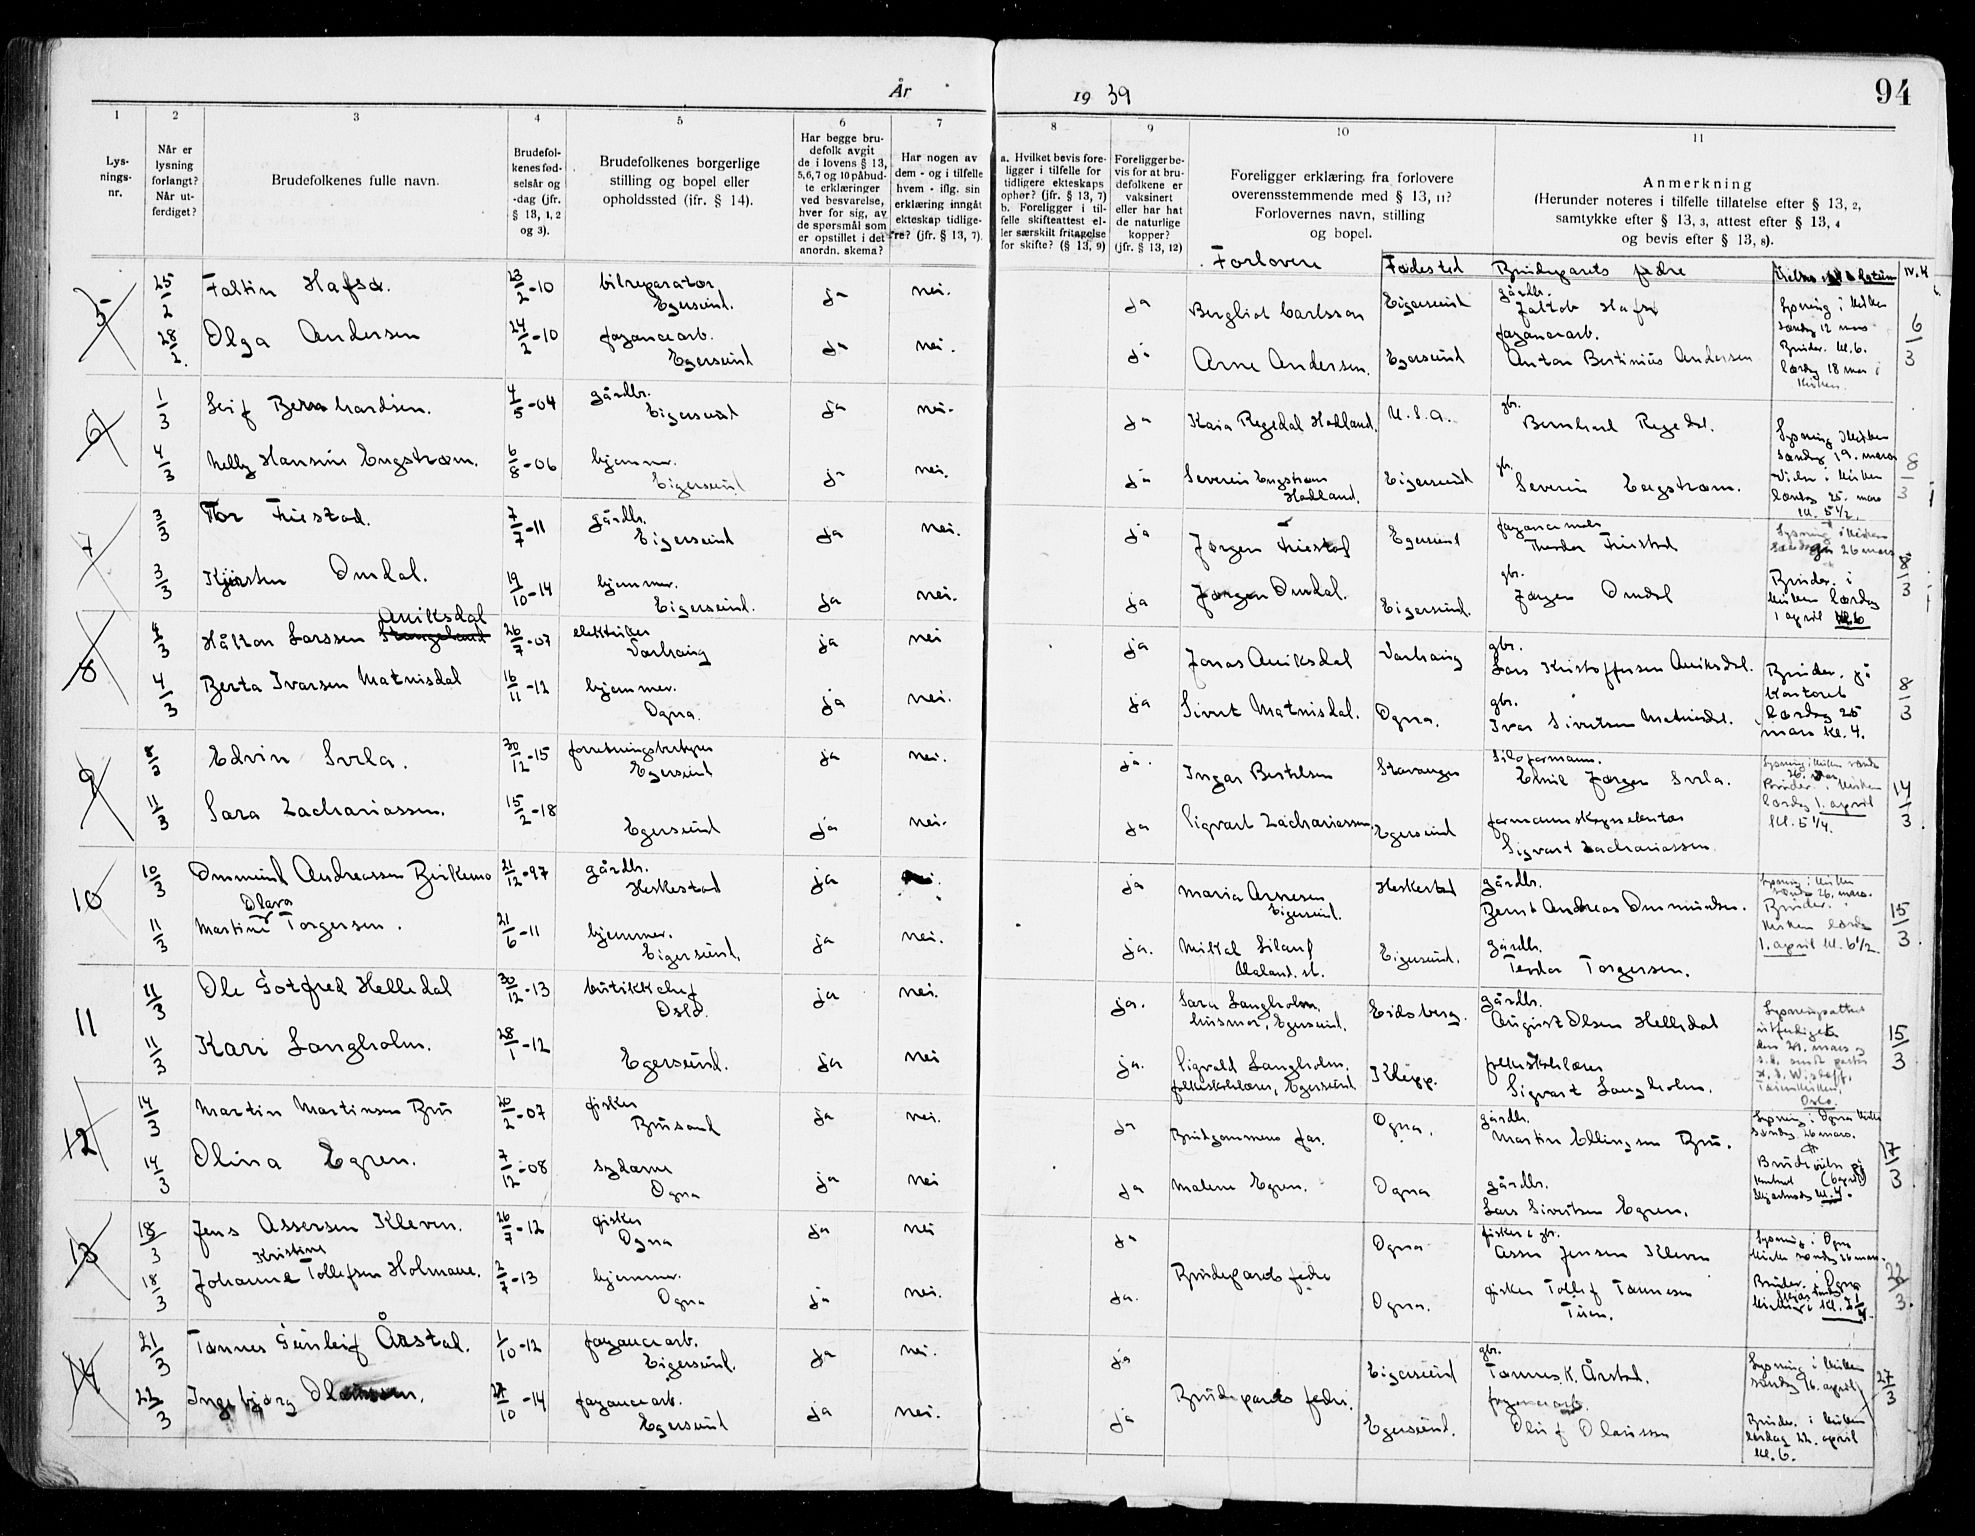 År 1939
94
1 2 3 4 5 6 7 8 9 10 11
Lys-
nings-
nr.
Når er
lysning
forlangt?
Når ut-
ferdiget?
Brudefolkenes fulle navn.
Brudefol-
kenes fød-
selsår og
-dag (jfr.
§ 13, 1, 2
og 3).
Brudefolkenes borgerlige
stilling og bopel eller
opholdssted (jfr. § 14).
Har begge bru-
defolk avgit
de i lovens § 13,
5,6,7 og 10 påbud-
te erklæringer
ved besvarelse,
hver for sig, av
de spørsmål som
er opstillet i det
anordn. skema?
Har nogen av
dem - og i tilfelle
hvem - iflg. sin
erklæring inngåt
ekteskap tidlige-
re? (jfr. § 13, 7).
a. Hvilket bevis fore-
ligger i tilfelle for
tidligere ekteskaps
ophør? (jfr. § 13, 7)
b. Foreligger i til-
felle skifteattest el-
ler særskilt fritagelse
for skifte? (§ 13, 9)
Foreligger be-
vis for at bru-
defolkene er
vaksinert
eller har hat
de naturlige
kopper?
(jfr. § 13, 12)
Foreligger erklæring fra forlovere
overensstemmende med § 13, 11?
Forlovernes navn, stilling
og bopel.
Anmerkning
(Herunder noteres i tilfelle tillatelse efter § 13, 2,
samtykke efter § 13, 3, attest efter § 13, 4
og bevis efter § 13, 8).
Forlovere Fødested Brudeparets fedre
5 25/2 Faltin Hafsø 23/2-10 bilreparatør Egersund. ja nei. ja Bergliot Carlsson Eigersund gårdbr. 6/3
28/2. Olga Andersen 24/2-10 fayancearb. Egersund ja nei. ja Arne Andersen. Egersund fayancearb. Anton Bertinius Andersen
Lysning i kirken
søndag 12 mars
Bruder. kl. 6.
lørdag 18 mars i
kirken.
6 1/3 Leif Bernhardsen. 4/5-04 gårdbr. Eigersund ja nei. ja Kaia Regedal Hadland. U.S.A. gbr. Bernhard Regedal. 8/3
4/3 Nelly Hansine Engstrøm. 6/8-06 hjemmev. Eigersund ja nei. ja Severin Engstrøm Hadland. Eigersund gbr. Severin Engstrøm.
Lysning i kirken
søndag 19. mars
Vielse i kirken
lørdag 25. mars
kl. 5 1/2.
7 3/3 Tor Friestad. 7/7-11 gårdbr. Eigersund ja nei. ja Jørgen Friestad Egersund Teodor Friestad 8/3
3/3 Kjersten Omdal. 19/10-14 hjemmev. Eigersund. ja nei. ja Jørgen Omdal. Eigersund. gbr. Jørgen Omdal
Lysning i kirken
søndag 26 mars
Bruder. i
kirken lørdag
1 april kl. 6
8 4/3 Håkon Larssen Auiksdal 26/7-07 elektriker Varhaug ja nei ja Jonas Auiksdal Varhaug gbr. Lars Kristoffersen Auiksdal. 8/3
4/3 Berta Ivarsen Matnisdal 16/11-12 hjemmev. Ogna. ja nei. ja Sivert Matnisdal. Ogna. gbr. Ivar Sivertsen Matnisdal.
Bruder. på
kontoret
lørdag 25
mars kl. 4.
9 Edvin Svela. 30/12-15 forretningsbestyrer Egersund ja nei. ja. Ingar Bertelsen Stavanger Siloformann. Emil Jørgen Svela. 14/3
11/3 Sara Zachariassen. 15/2-18 Egersund ja nei. ja Sigvart Zachariassen Egersund Sigvart Zachariassen.
26. mars
Bruder. i kirken
lørdag 1. april
kl. 5 1/4.
10 10/3 Ommund Andreassen Birkemo 21/12-97 gårdbr. Heskestad ja ja Maria Arnesen Eigersund. Heskestad gårdbr. Bernt Andreas Ommundsen. 15/3.
11/3 Martine Olava Torgersen. 21/6-11 hjemmev. Eigersund. ja nei. ja. Mikal Eigersund. gårdbr. Teodor Torgersen.
Lysning i kirken
søndag 26. mars.
Bruder. i
kirken lørdag
1. april kl. 6 1/2.
11 11/3 Ole Gotfred Helledal 30/12-13 butikkchef Oslo. ja nei. ja. Sara Langholm, husmor, Egersund. Eidsberg. gårdbr. August Olsen Helledal 15/3
11/3 Kari Langholm. 28/1-12 Egersund. ja nei ja. Sigvald Langholm. folkeskolelærer, Egersund Klepp. folkeskolelærer Sigvart Langholm.
Lysningsattest
utferdiget
Oslo.
12 14/3 Martin Martinsen Bru 20/2-07 fisker Brusand ja nei. ja Brudgommens far. Ogna. gårdbr. Martin Ellingsen Bru. 17/3.
14/3 Olina Egren. 7/12-08 sydame Ogna ja nei ja Malene Egren. Ogna gårdbr. Lars Sivertsen Egren.
Lysning i Ogna kirke
søndag 26 mars.
13 18/3 Jens Assersen Kleven. 26/7-12 fisker Ogna ja nei ja Brudeparets fedre Ogna fisker & gbr. Asser Jensen Kleven 22/3.
18/3 Johanne Kristine Tollefsen Holmane. 2/7-13 hjemmev. Ogna ja nei. ja. Ogna. fisker Tollef Tønnesen Tuen.
Lysning i Ogna
kirke søndag 26 mars.
Bruder. i Ogna
14 21/3 Tønnes Gunleif Årstad. 1/10-12 fayancearb. Eigersund. ja nei. ja Brudeparets fedre. Eigersund gbr. Tønnes K. Årstad. 27/3
22/3 Ingebjørg 10-14 fayancearb. Egersund ja nei. ja Egersund. fayancearb.
Lysning i kirken
søndag 16. april
Bruder. i kirken
lørdag 22. april
kl. 6.